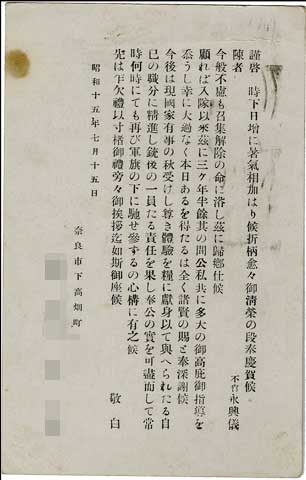 謹啓 時下日增に暑氣相加はり候折柄愈々御淸榮の段奉慶賀候
陳者 不肖永興儀
今般不慮も召集解除の命に浴し茲に歸鄕仕候
顧れば入隊以來茲に三ヶ年半餘其の間公私共に多大の御高庇御指導を
忝うし幸に大過なく本日あるを得たるは全く諸賢の賜と奉深謝候
今後は現國家有事の秋受けし尊き體驗を糧に獻身以て與へられたる自
已の職分に精進し銃後の一員たる責任を果し奉公の實を可盡而して常
時何時にても再び軍旗の下に馳せ參ずるの心構に有之候
先は乍欠禮以寸楮御禮旁々御挨拶迄如斯御座候
敬白
昭和十五年七月十五日
奈良市下高畑町